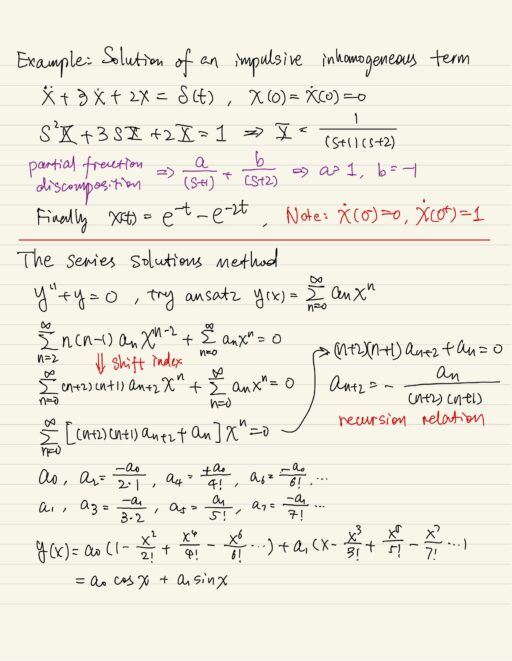 Example: Solution of an impulsive inhomogeneous term
ẍ + 3ẋ + 2x = δ(t) , x(0) = ẋ(0) = 0
S²X + 3SX + 2X = 1 ⇒ X = 1/((S+1)(S+2))
partial fraction discomposition ⇒ a/(S+1) + b/(S+2) ⇒ a = 1, b = -1
Finally x(t) = e^{-t} - e^{-2t} , Note: ẋ(0⁻)=0, ẋ(0⁺)=1
The series solutions method
y'' + y = 0 , try ansatz y(x) = ∑_{n=0}^{∞} aₙxⁿ
∑_{n=2}^{∞} n(n-1) aₙ x^{n-2} + ∑_{n=0}^{∞} aₙxⁿ = 0
⇓ shift index
∑_{n=0}^{∞} (n+2)(n+1) a_{n+2} xⁿ + ∑_{n=0}^{∞} aₙxⁿ = 0
∑_{n=0}^{∞} [(n+2)(n+1) a_{n+2} + aₙ] xⁿ = 0
→ (n+2)(n+1) a_{n+2} + aₙ = 0
a_{n+2} = - aₙ/((n+2)(n+1))
recursion relation
a₀ , a₂ = -a₀/(2·1) , a₄ = +a₀/4! , a₆ = -a₀/6! , ...
a₁ , a₃ = -a₁/(3·2) , a₅ = a₁/5! , a₇ = -a₁/7! ...
y(x) = a₀ (1 - x²/2! + x⁴/4! - x⁶/6! ...) + a₁ (x - x³/3! + x⁵/5! - x⁷/7! ...)
= a₀ cos x + a₁ sin x